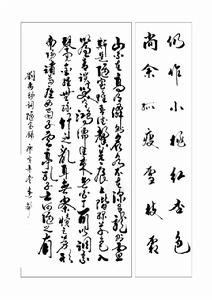 仍作小桃红杏色
尚余孤瘦雪枝霜
山不在高有仙则名水不在深有龙则灵
斯是陋室惟吾德馨苔痕上阶绿草色入帘
青谈笑有鸿儒往来无白丁可以调素
琴阅金经无丝竹之乱耳无案牍之劳形
南阳诸葛庐西蜀子云亭孔子云何陋之有
劉禹锡词陋室铭